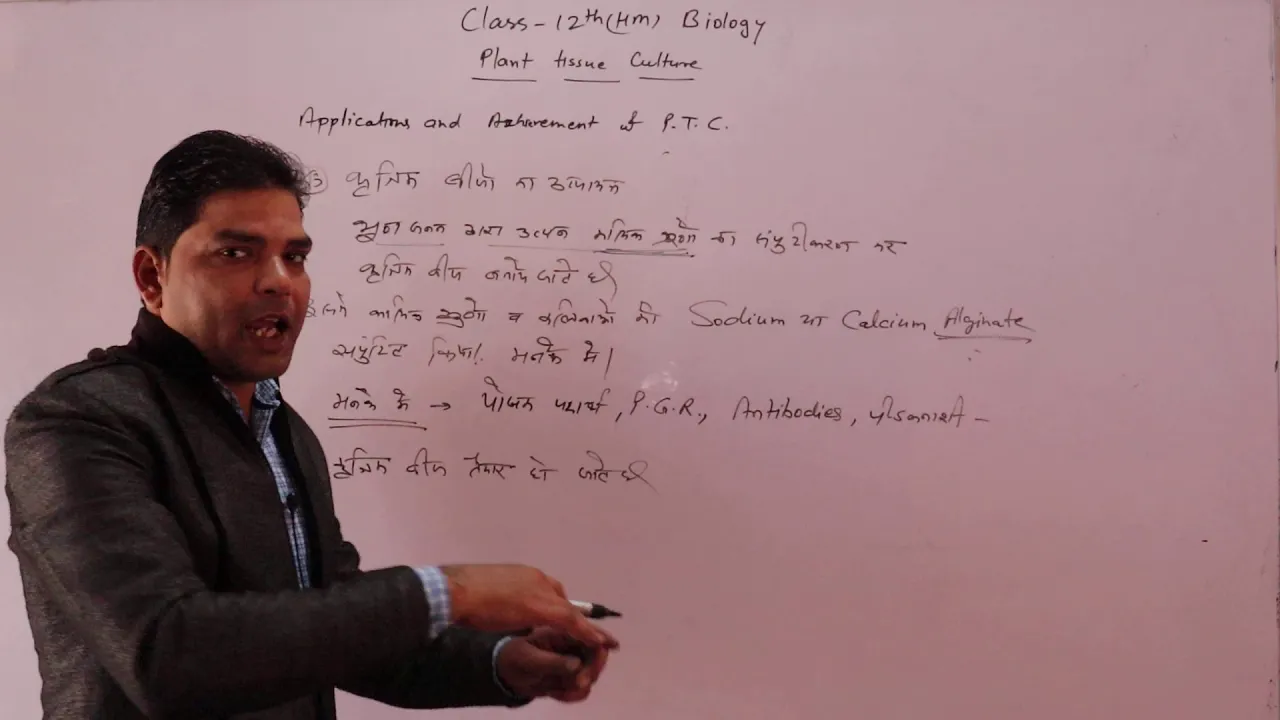 Class-12th(HM) Biology
Plant tissue Culture
Applications and Achievement of P.T.C.
③ कृत्रिम बीजों का उत्पादन
भ्रूण जनन द्वारा उत्पन्न कायिक भ्रूणों का संपुटीकरण कर
कृत्रिम बीज बनाये जाते हैं
इसमे कायिक भ्रूणों व कलिकाओं को Sodium या Calcium Alginate
संपुटित किया। मनके में।
मनके में → पोषक पदार्थ, P.G.R., Antibodies, पीडकनाशी -
कृत्रिम बीज तैयार हो जाते हैं